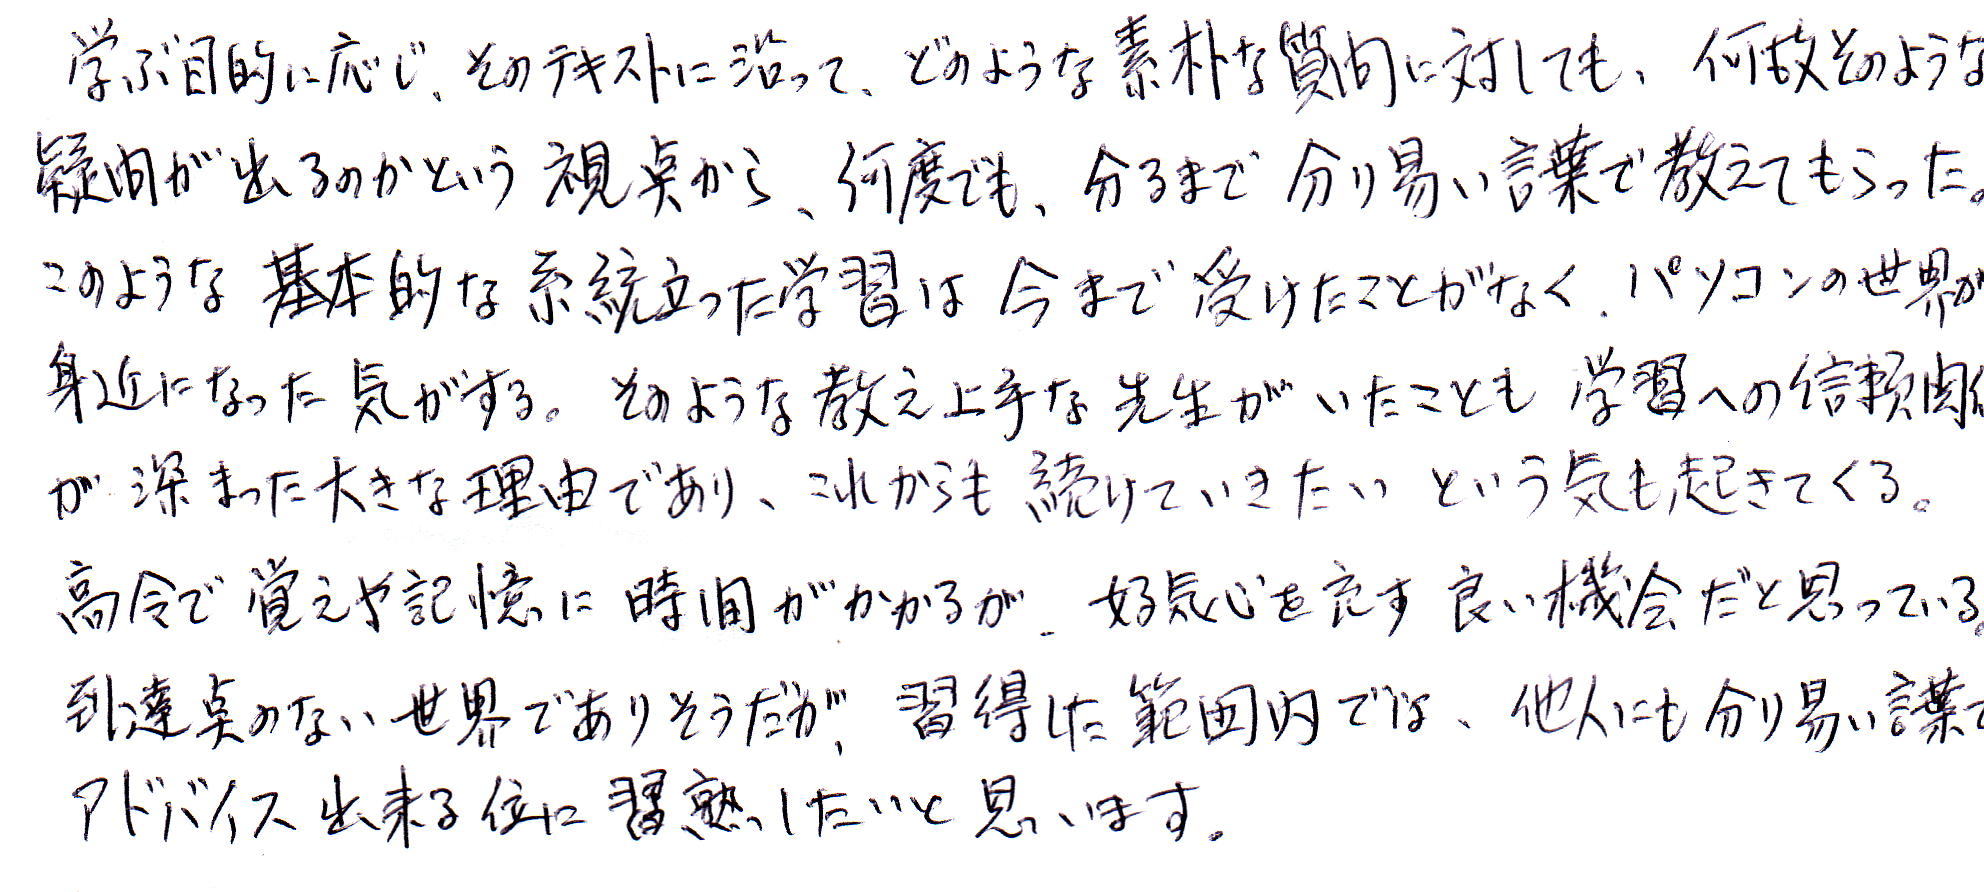 学ぶ目的に応じ、そのテキストに沿って、どのような素朴な質問に対しても、何故そのような
疑問が出るのかという視点から、何度でも、分るまで分り易い言葉で教えてもらった。
このような基本的な系統立った学習は今まで受けたことがなく、パソコンの世界が
身近になった気がする。そのような教え上手な先生がいたことも学習への信頼関係
が深まった大きな理由であり、これからも続けていきたいという気も起きてくる。
高令で覚えや記憶に時間がかかるが、好気心を充す良い機会だと思っている。
到達点のない世界でありそうだが、習得した範囲内では、他人にも分り易い言葉で
アドバイス出来る位に習熟したいと思います。